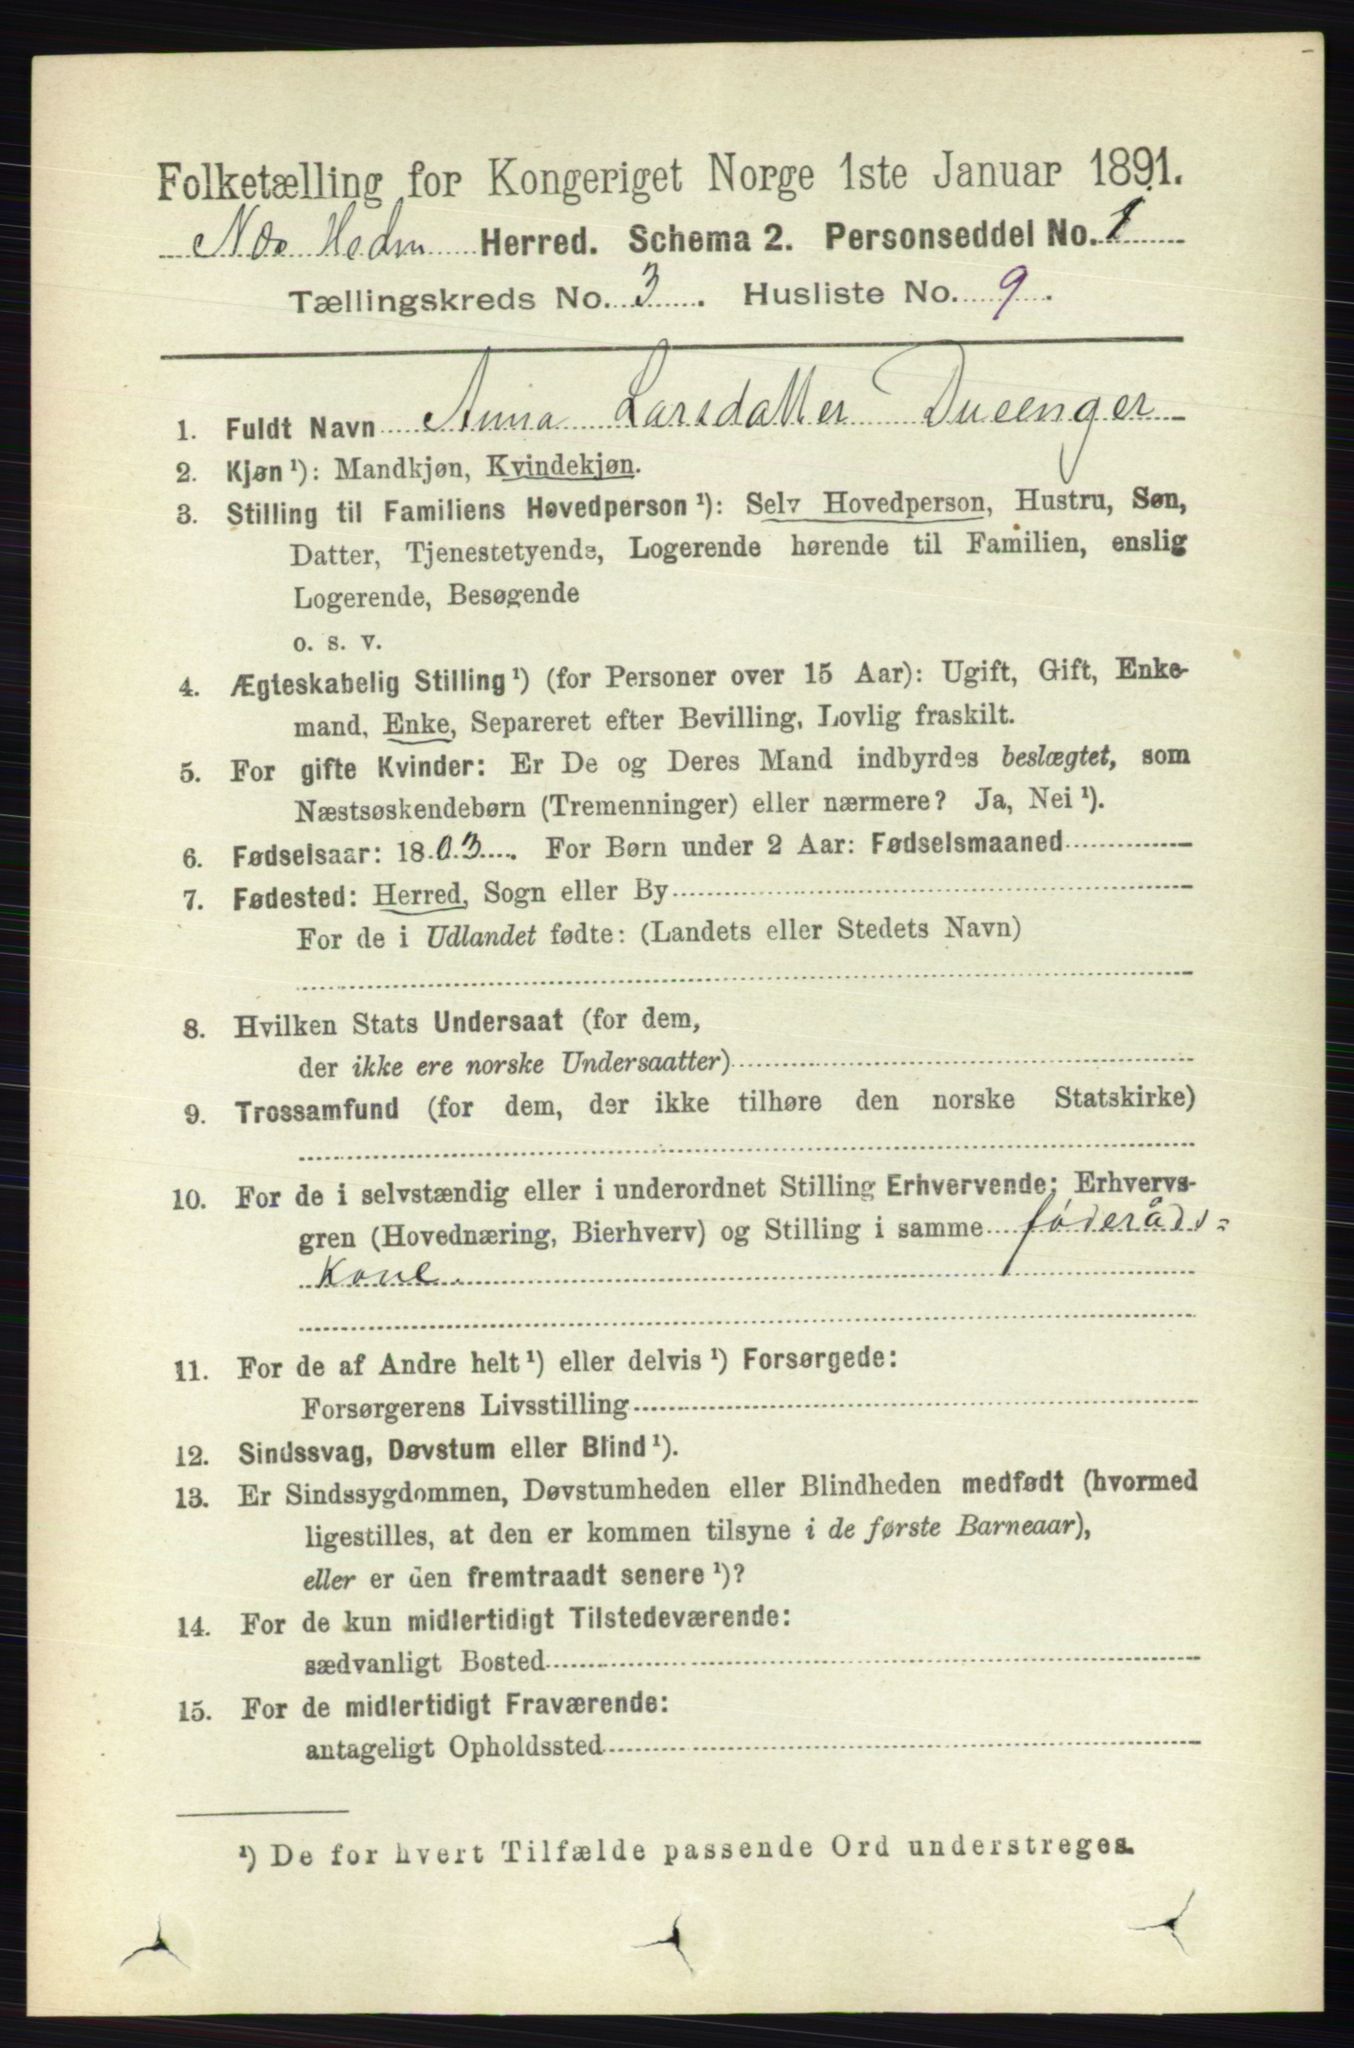 Folketælling for Kongeriget Norge 1ste Januar 1891.
Næs Hedm Herred. Schema 2. Personseddel No. 1
Tællingskreds No. 3. Husliste No. 9.
1. Fuldt Navn Anna Larsdatter Dueenger
2. Kjøn ¹): Mandkjøn, Kvindekjøn.
3. Stilling til Familiens Hovedperson ¹): Selv Hovedperson, Hustru, Søn,
Datter, Tjenestetyende, Logerende hørende til Familien, enslig
Logerende, Besøgende
o. s. v.
4. Ægteskabelig Stilling ¹) (for Personer over 15 Aar): Ugift, Gift, Enke-
mand, Enke, Separeret efter Bevilling, Lovlig fraskilt.
5. For gifte Kvinder: Er De og Deres Mand indbyrdes beslægtet, som
Næstsøskendebørn (Tremenninger) eller nærmere? Ja, Nei ¹).
6. Fødselsaar: 1803. For Børn under 2 Aar: Fødselsmaaned
7. Fødested: Herred, Sogn eller By
For de i Udlandet fødte: (Landets eller Stedets Navn)
8. Hvilken Stats Undersaat (for dem,
der ikke ere norske Undersaatter)
9. Trossamfund (for dem, der ikke tilhøre den norske Statskirke)
10. For de i selvstændig eller i underordnet Stilling Erhvervende: Erhvervs-
gren (Hovednæring, Bierhverv) og Stilling i samme føderåds-
Kone.
11. For de af Andre helt ¹) eller delvis ¹) Forsørgede:
Forsørgerens Livsstilling
12. Sindssvag, Døvstum eller Blind ¹).
13. Er Sindssygdommen, Døvstumheden eller Blindheden medfødt (hvormed
ligestilles, at den er kommen tilsyne i de første Barneaar),
eller er den fremtraadt senere ¹)?
14. For de kun midlertidigt Tilstedeværende:
sædvanligt Bosted
15. For de midlertidigt Fraværende:
antageligt Opholdssted
¹) De for hvert Tilfælde passende Ord understreges.